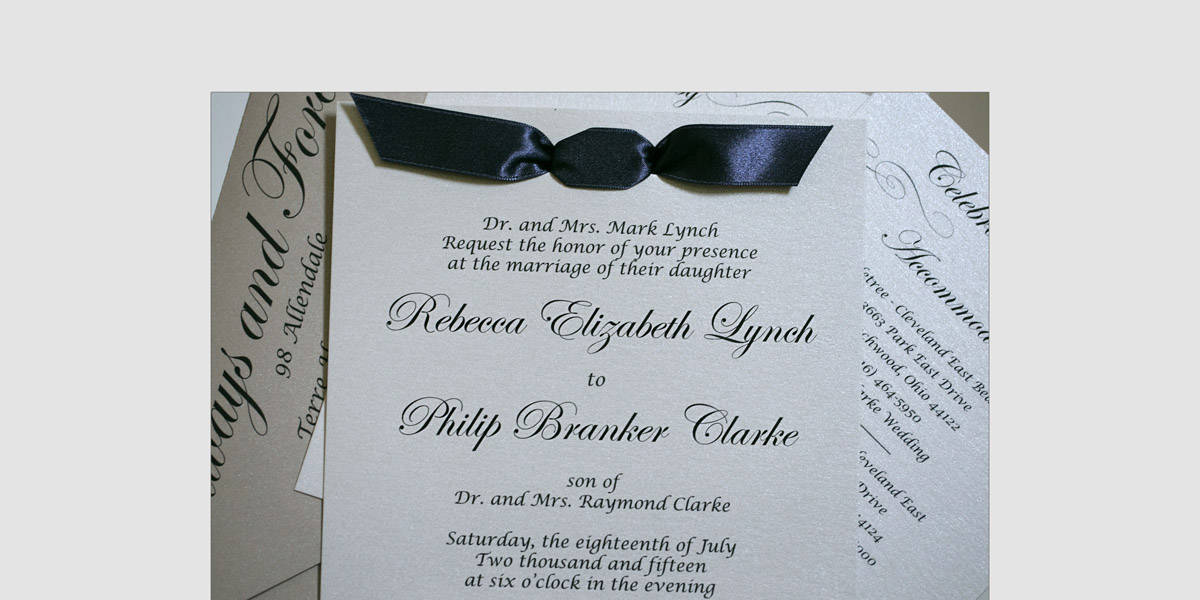 Dr. and Mrs. Mark Lynch
Request the honor of your presence
at the marriage of their daughter
Rebecca Elizabeth Lynch
to
Philip Branker Clarke
son of
Dr. and Mrs. Raymond Clarke
Saturday, the eighteenth of July
Two thousand and fifteen
at six o'clock in the evening
and
98 Allendale
Terre
Cleveland East
3663 Park East Drive
Ohio 44122
464-5950
Wedding
East
Drive
44124